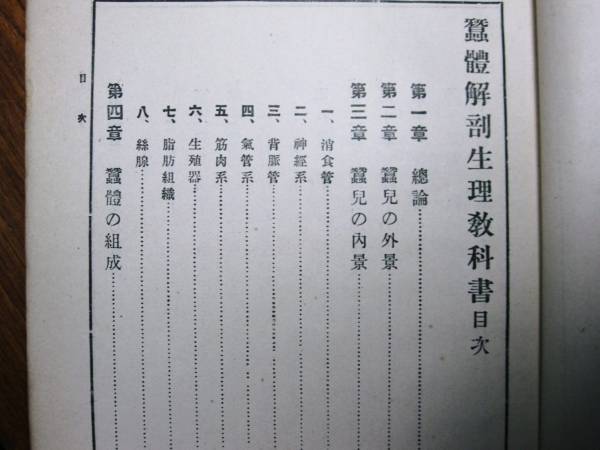 蠶體解剖生理教科書目次
第一章 總論
第二章 蠶兒の外景
第三章 蠶兒の內景
一、消食管
二、神經系
三、背脈管
四、氣管系
五、筋肉系
六、生殖器
七、脂肪組織
八、絲腺
第四章 蠶體の組成
目次